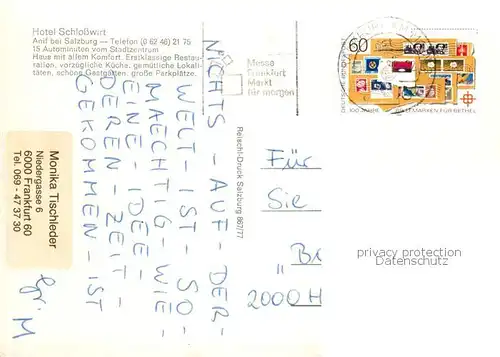 Hotel Schloßwirt
Anif bei Salzburg — Telefon (0 62 46) 21 75
15 Autominuten vom Stadtzentrum
Haus mit allem Komfort. Erstklassige Restau-
ration, vorzügliche Küche, gemütliche Lokali-
täten, schöne Gastgärten, große Parkplätze.
Messe
Frankfurt
Markt
für morgen
60
DEUTSCHE BUNDESPOST
100 JAHRE BRIEFMARKEN FÜR BETHEL
NICHTS - AUF - DER -
WELT - IST - SO -
MAECHTIG - WIE -
EINE - IDEE -
DEREN - ZEIT -
GEKOMMEN - IST
Monika Tischleder
Niedergasse 6
6000 Frankfurt 60
Tel. 069 - 47 37 30
M
Reischl-Druck Salzburg 867/77
Für
Sie
2000 H
privacy protection
Datenschutz